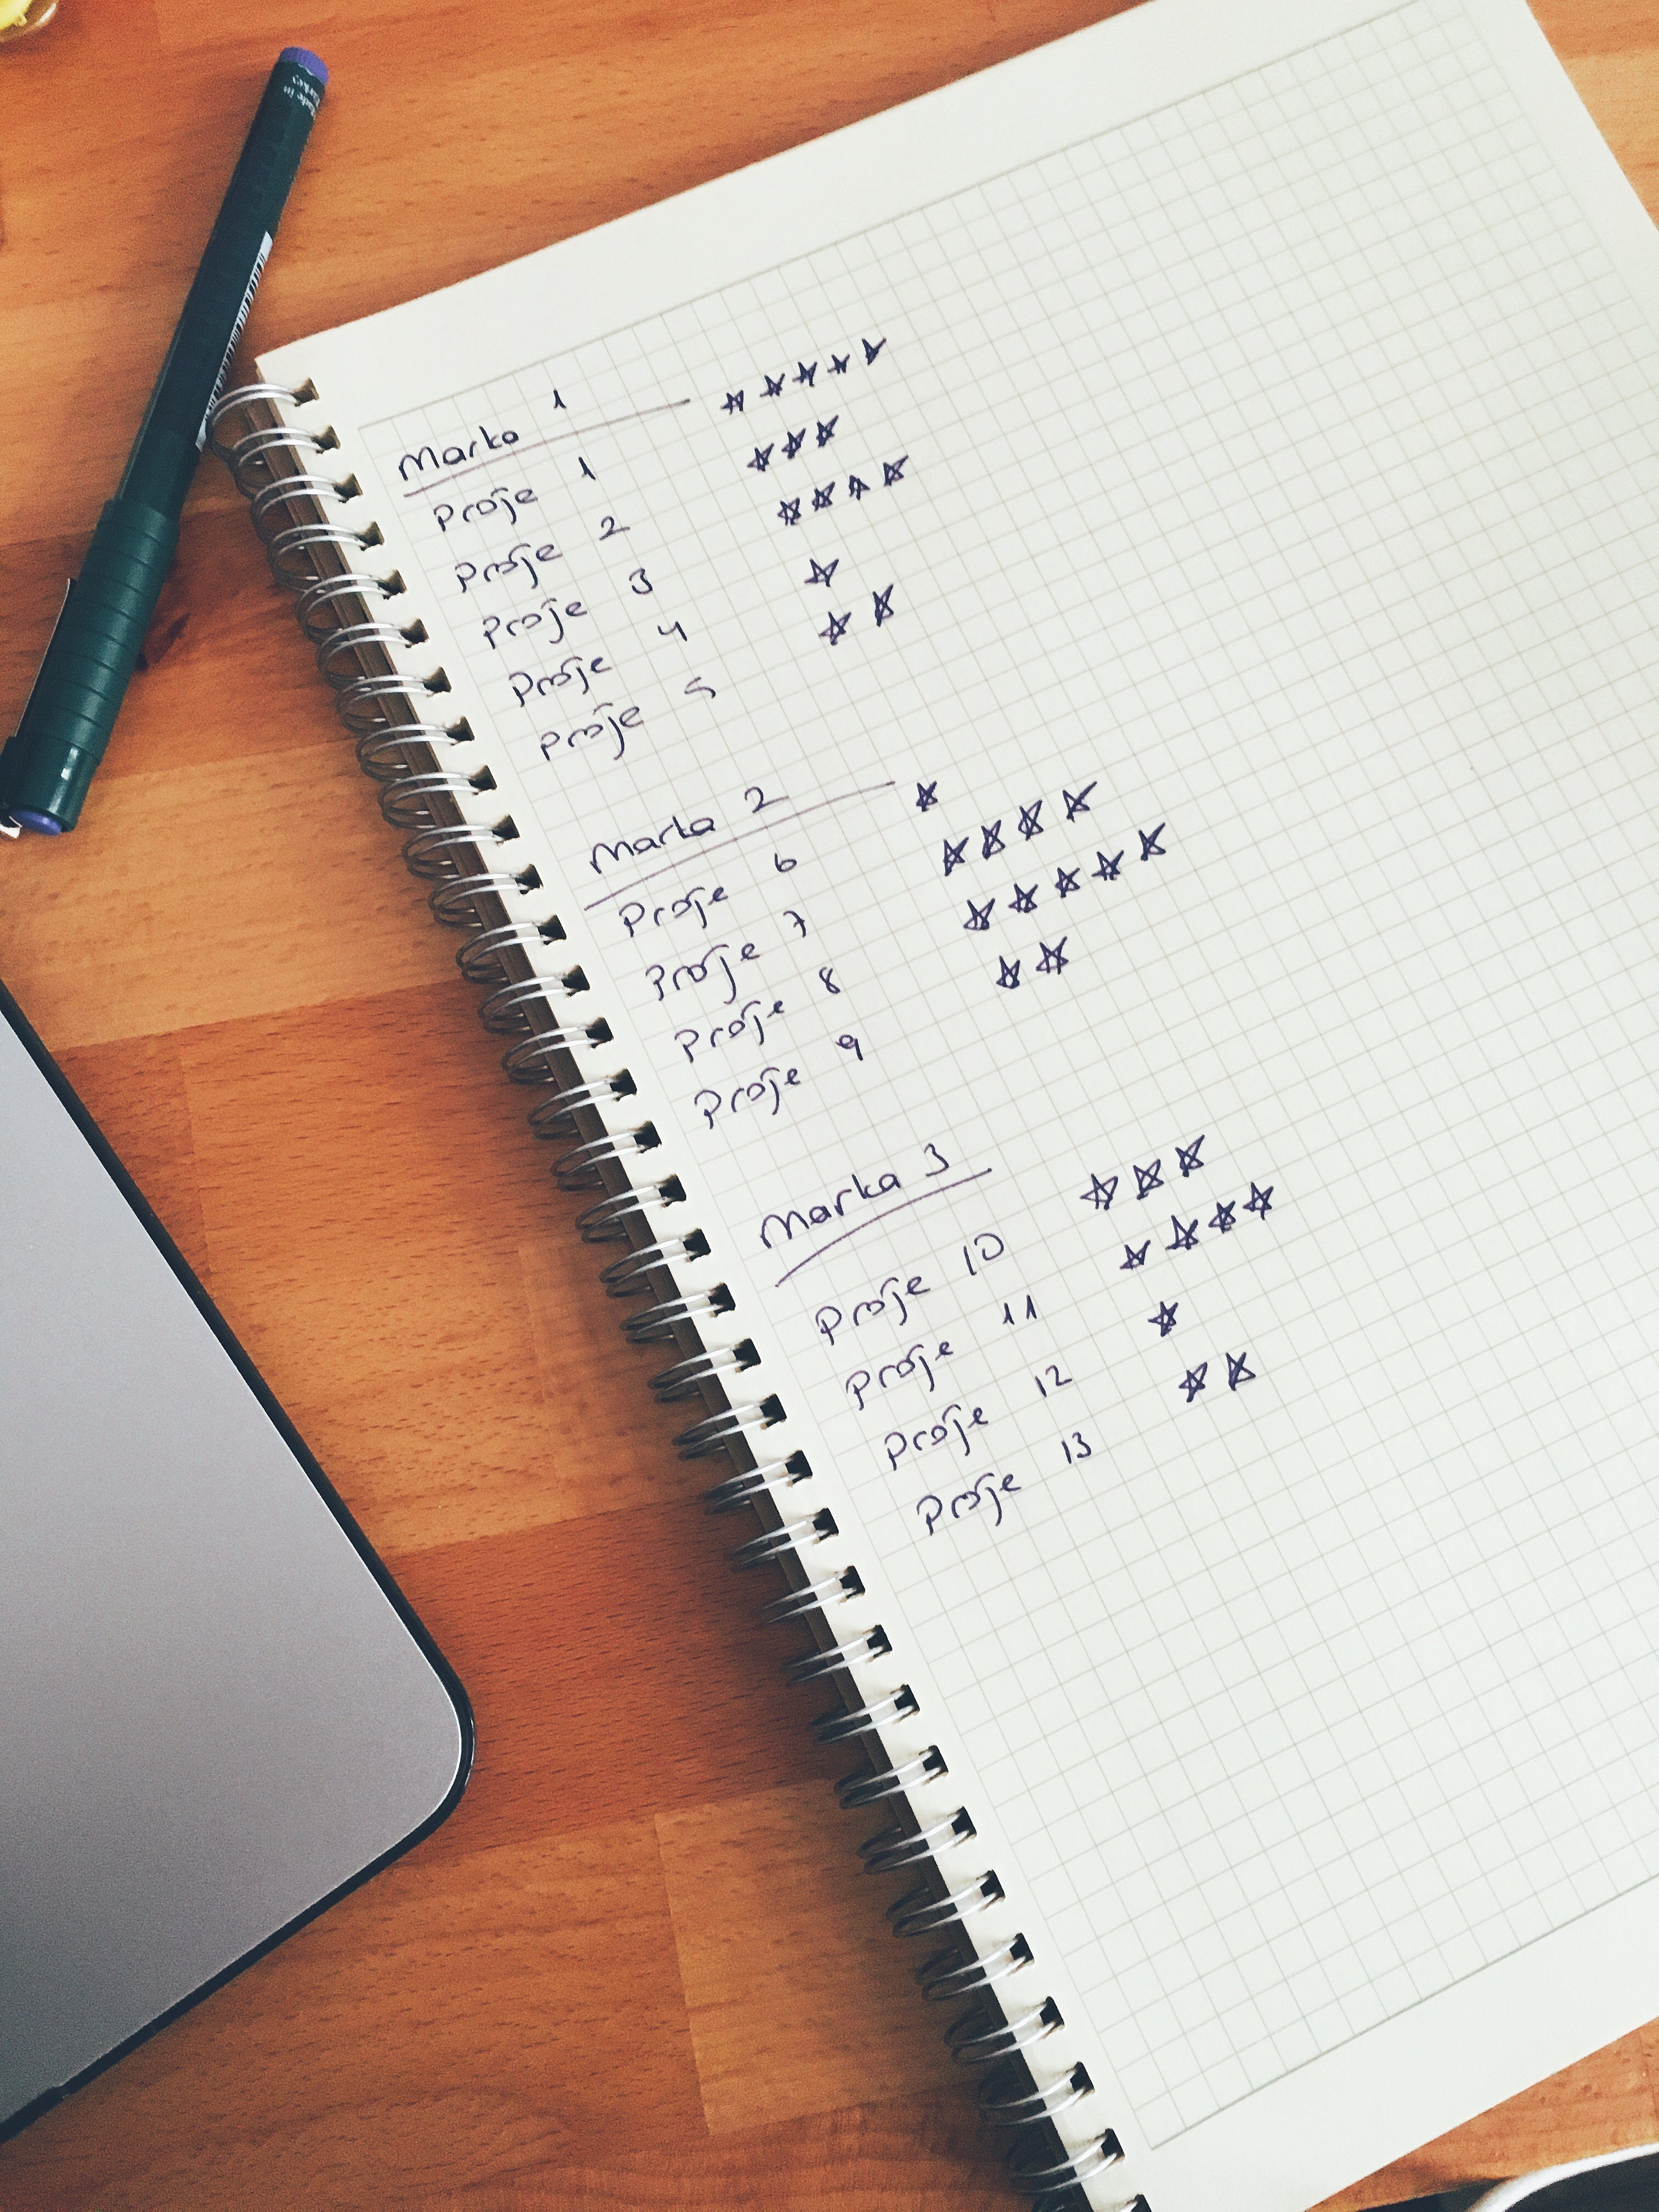 Marka 1
Proje 1 ★★★★★
Proje 2 ★★★
Proje 3 ★★★★
Proje 4 ★
Proje 5 ★★
Marka 2
Proje 6 ★
Proje 7 ★★★★
Proje 8 ★★★★★
Proje 9 ★★
Marka 3
Proje 10 ★★★
Proje 11 ★★★★
Proje 12 ★
Proje 13 ★★